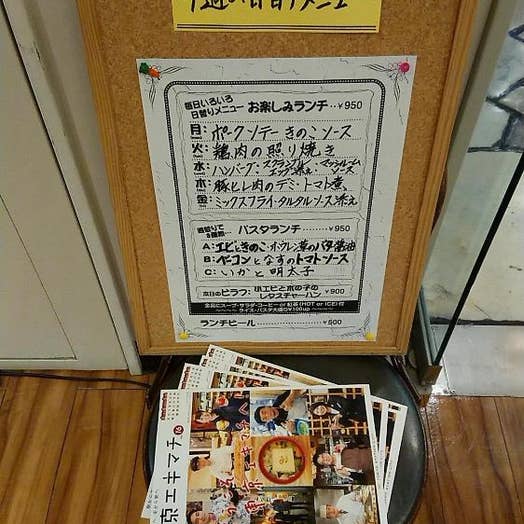 毎日いろいろ
日替りメニュー お楽しみランチ‥¥950
月: ポークソテーきのこソース
火: 鶏肉の照り焼き
水: ハンバーグ・スクランブルエッグ添え・マッシュルームソース
木: 豚ヒレ肉のデミ・トマト煮
金: ミックスフライ・タルタルソース添え
パスタランチ ¥950
A: エビときのこ・ホウレン草のバタ醤油
B: ベーコンとなすのトマトソース
C: いかと明太子
本日のピラフ: 小エビと木の子の
レタスチャーハン ¥900
全品にスープ・サラダ・コーヒー or 紅茶(HOT or ICE)付
ライス・パスタ大盛り¥100up
ランチビール ¥500
京エキマチ